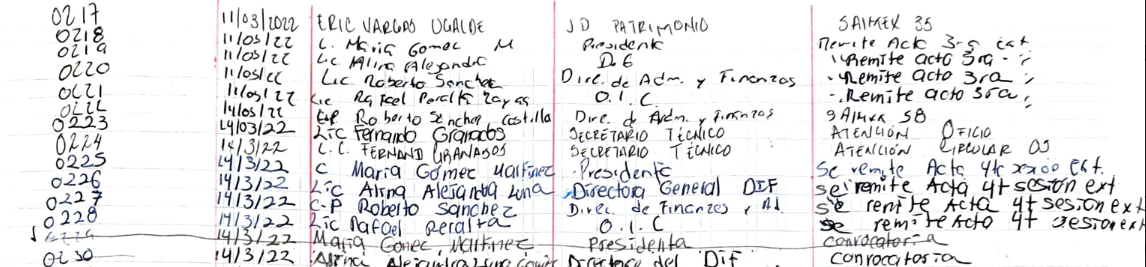 0217 11/03/2022 ERIC VARGAS UGALDE JD PATRIMONIO SAIMEX 35
0218 11/03/22 C. Maria Gomez M Presidente Remite Acta 3ra ext
0219 11/03/22 Lic Alina Alejandra D.G Remite acta 3ra
0220 11/03/22 Lic Roberto Sanchez Direc. de Adm. y Finanzas Remite acta 3ra
0221 11/03/22 Lic Rafael Peralta Zayas O.I.C Remite acta 3ra
0222 14/03/22 C.P Roberto Sanchez Castillo Direc. de Adm. y Finanzas SAIMEX 38
0223 14/03/22 Lic Fernando Granados SECRETARIO TÉCNICO ATENCIÓN OFICIO
0224 14/3/22 L.C. FERNAND GRANADOS SECRETARIO TÉCNICO ATENCIÓN CIRCULAR
0225 14/3/22 C Maria Gomez Martinez Presidente Se remite Acta 4ta ext.
0226 14/3/22 Lic Alina Alejandra Luna Directora General DIF se remite Acta 4t sesion ext
0227 14/3/22 C.P Roberto Sanchez Direc. de Finanzas se remite Acta 4t sesion ext
0228 14/3/22 Lic Rafael Peralta O.I.C se remite Acta 4t sesion ext
0229 14/3/22 Maria Gomez Martinez Presidenta convocatoria
0230 14/3/22 Alina Alejandra Luna Directora del DIF convocatoria